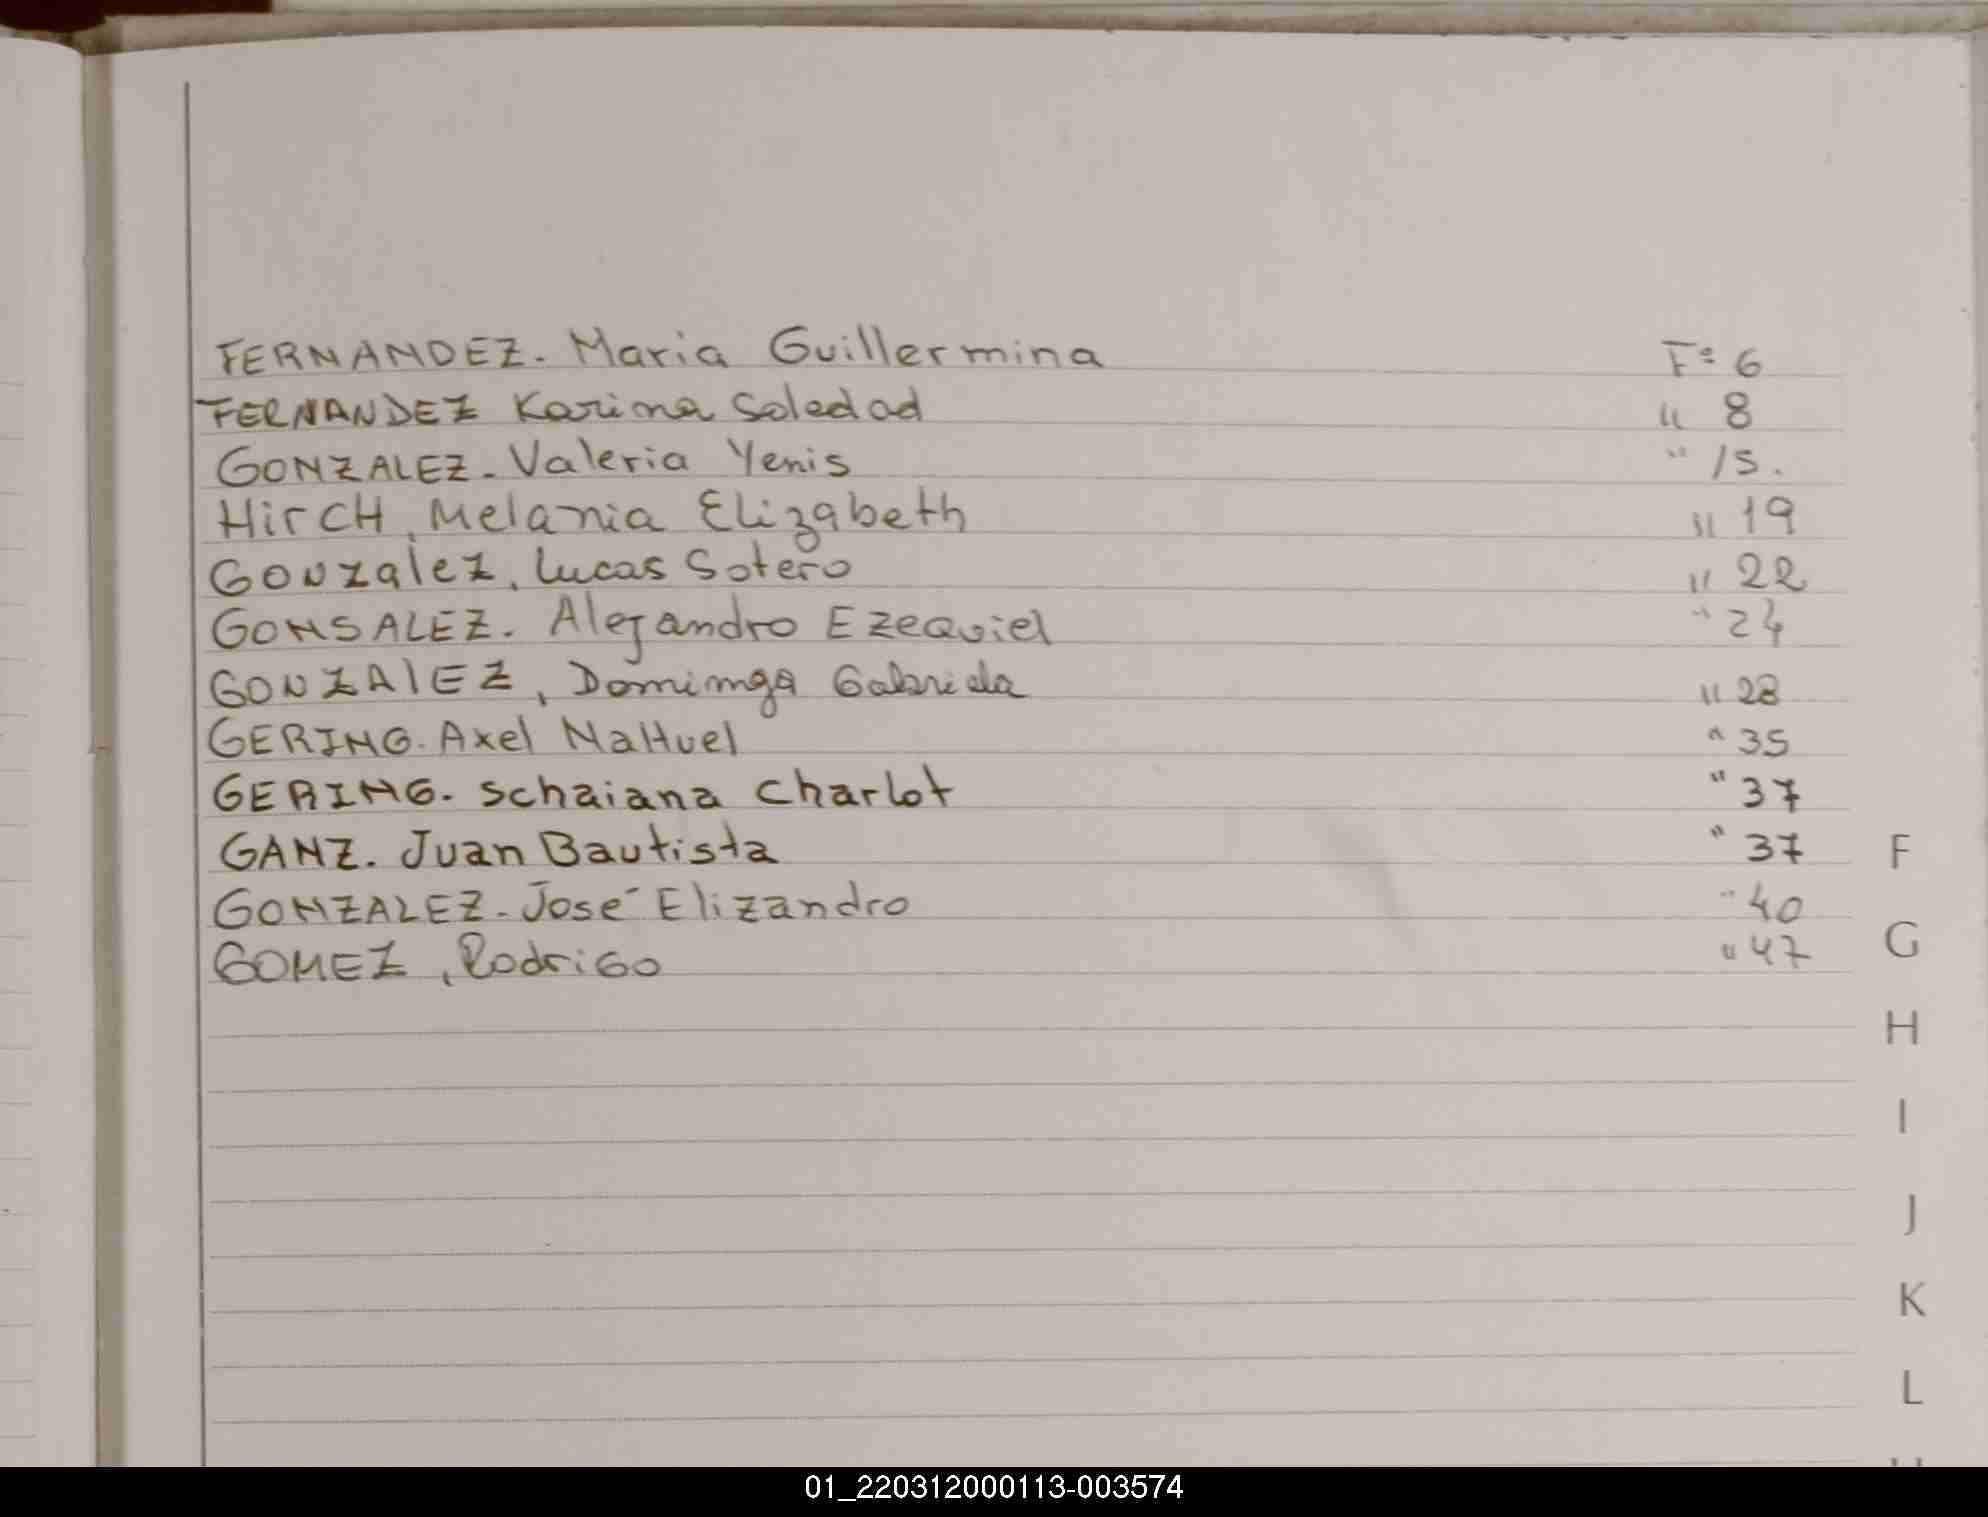 FERNANDEZ. Maria Guillermina Fº 6
FERNANDEZ Karina Soledad " 8
GONZALEZ. Valeria Yenis " 15.
HirCH, Melania Elizabeth " 19
GONzalez, Lucas Sotero " 22
GONSALEZ. Alejandro EZEQuiel " 24
GONZAlEZ, Dominga Gabriela " 28
GERING. Axel NaHuel " 35
GERING. Schaiana Charlot " 37
GANZ. Juan Bautista " 37
GONZALEZ. José Elizandro " 40
GOMEZ, RodriGo " 47
F
G
H
I
J
K
L
01_220312000113-003574